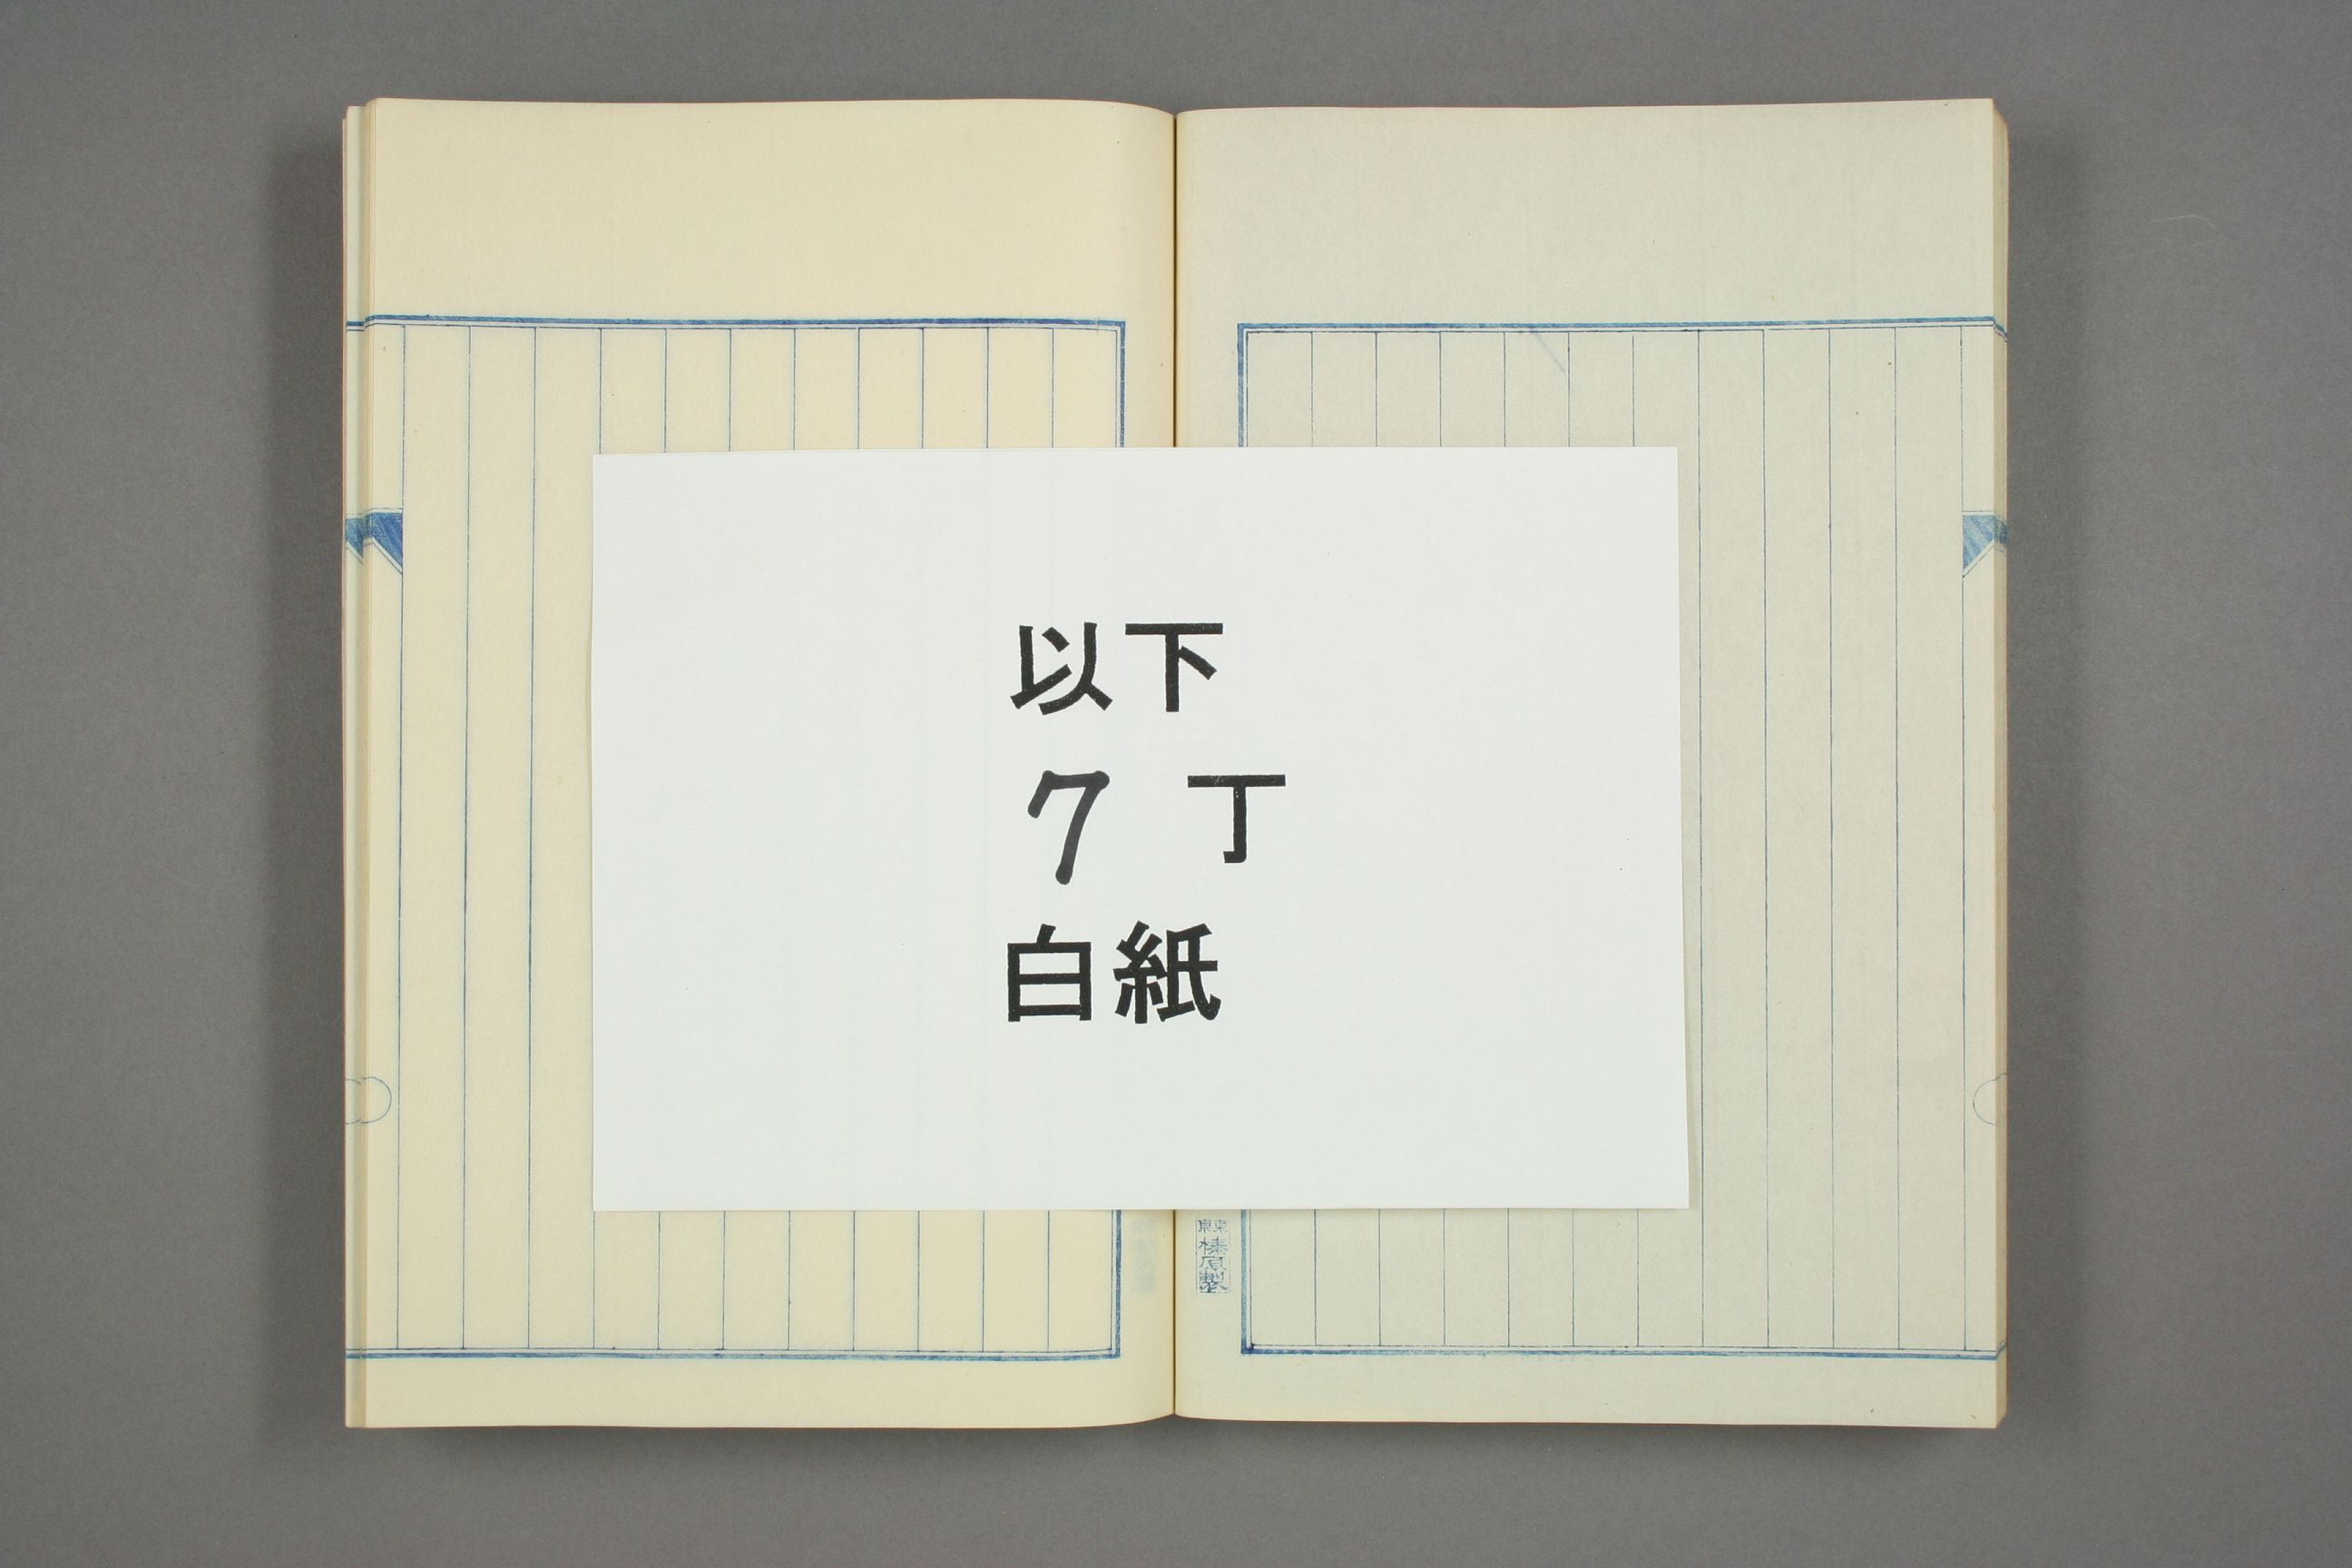 以下
7 丁
白紙
榛原製